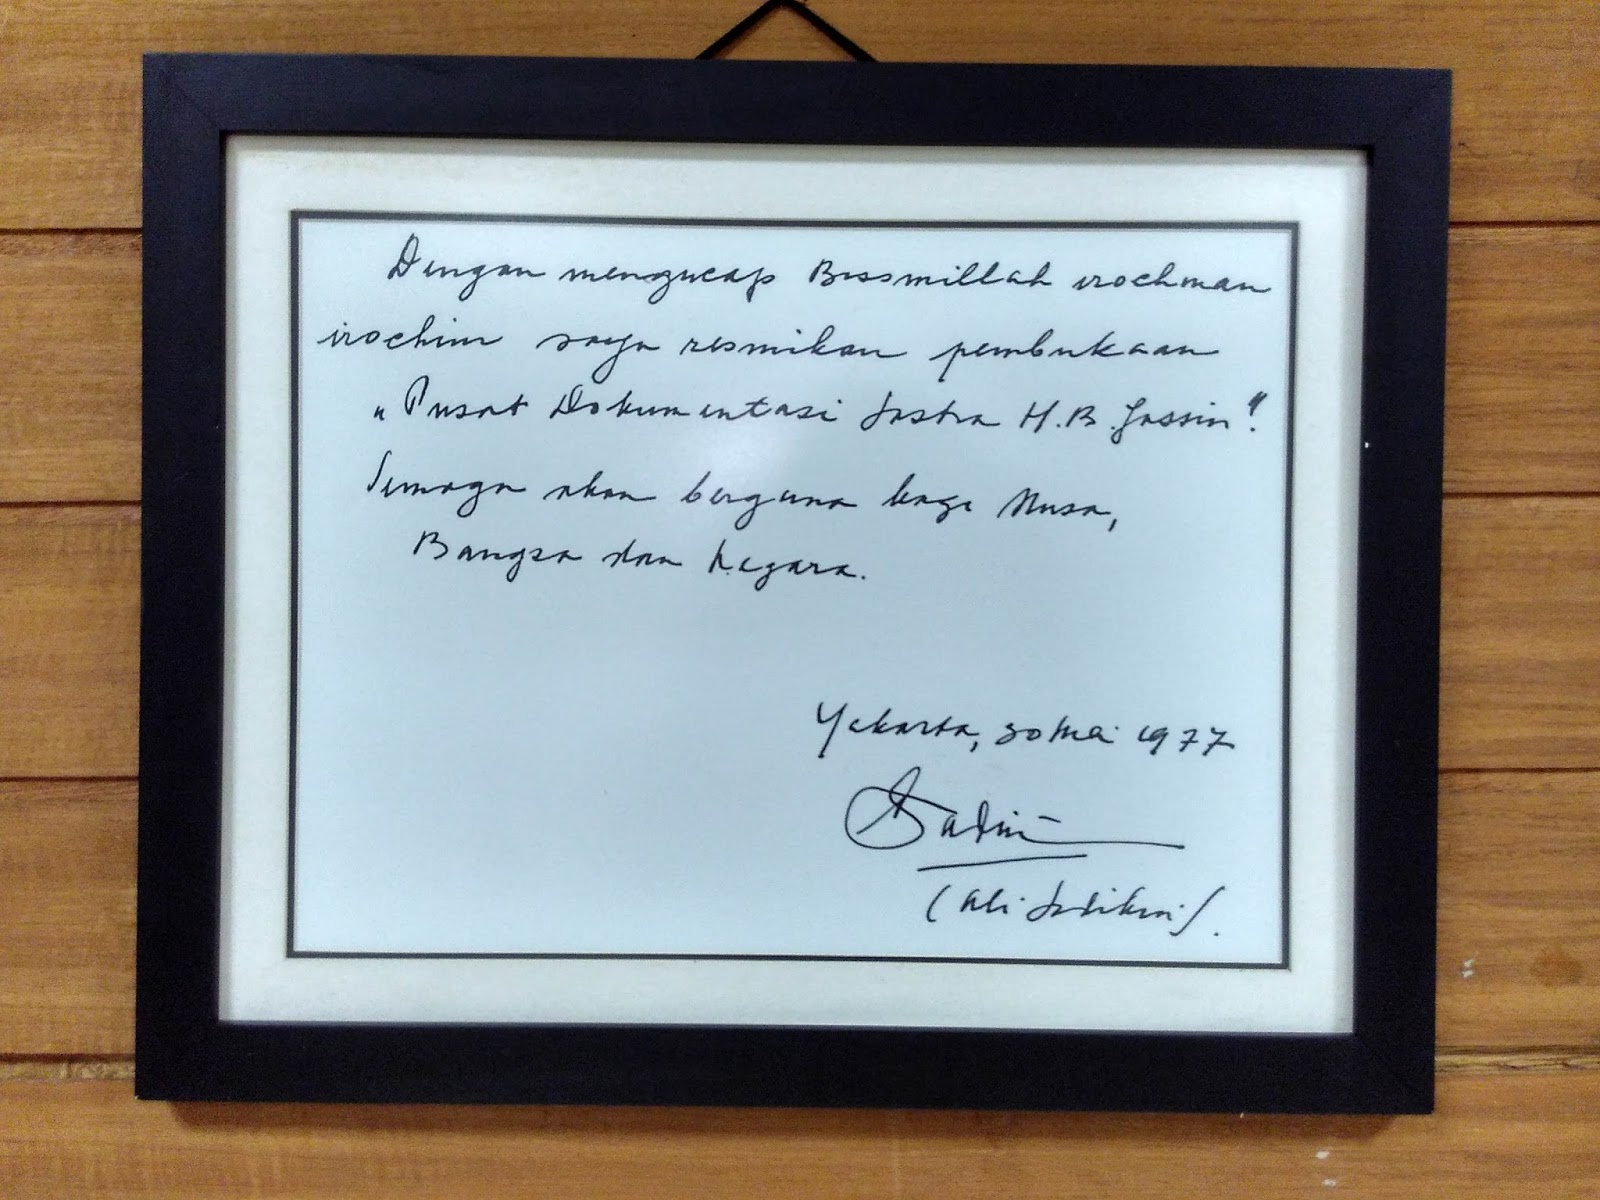 Dengan mengucap Bissmillah irochman
irochim saya resmikan pembukaan
„Pusat Dokumentasi Sastra H.B. Jassin“.
Semoga akan berguna bagi Nusa,
Bangsa dan Negara.
Yakarta, 30 Mei 1977
Sadikin
(Ali Sadikin).